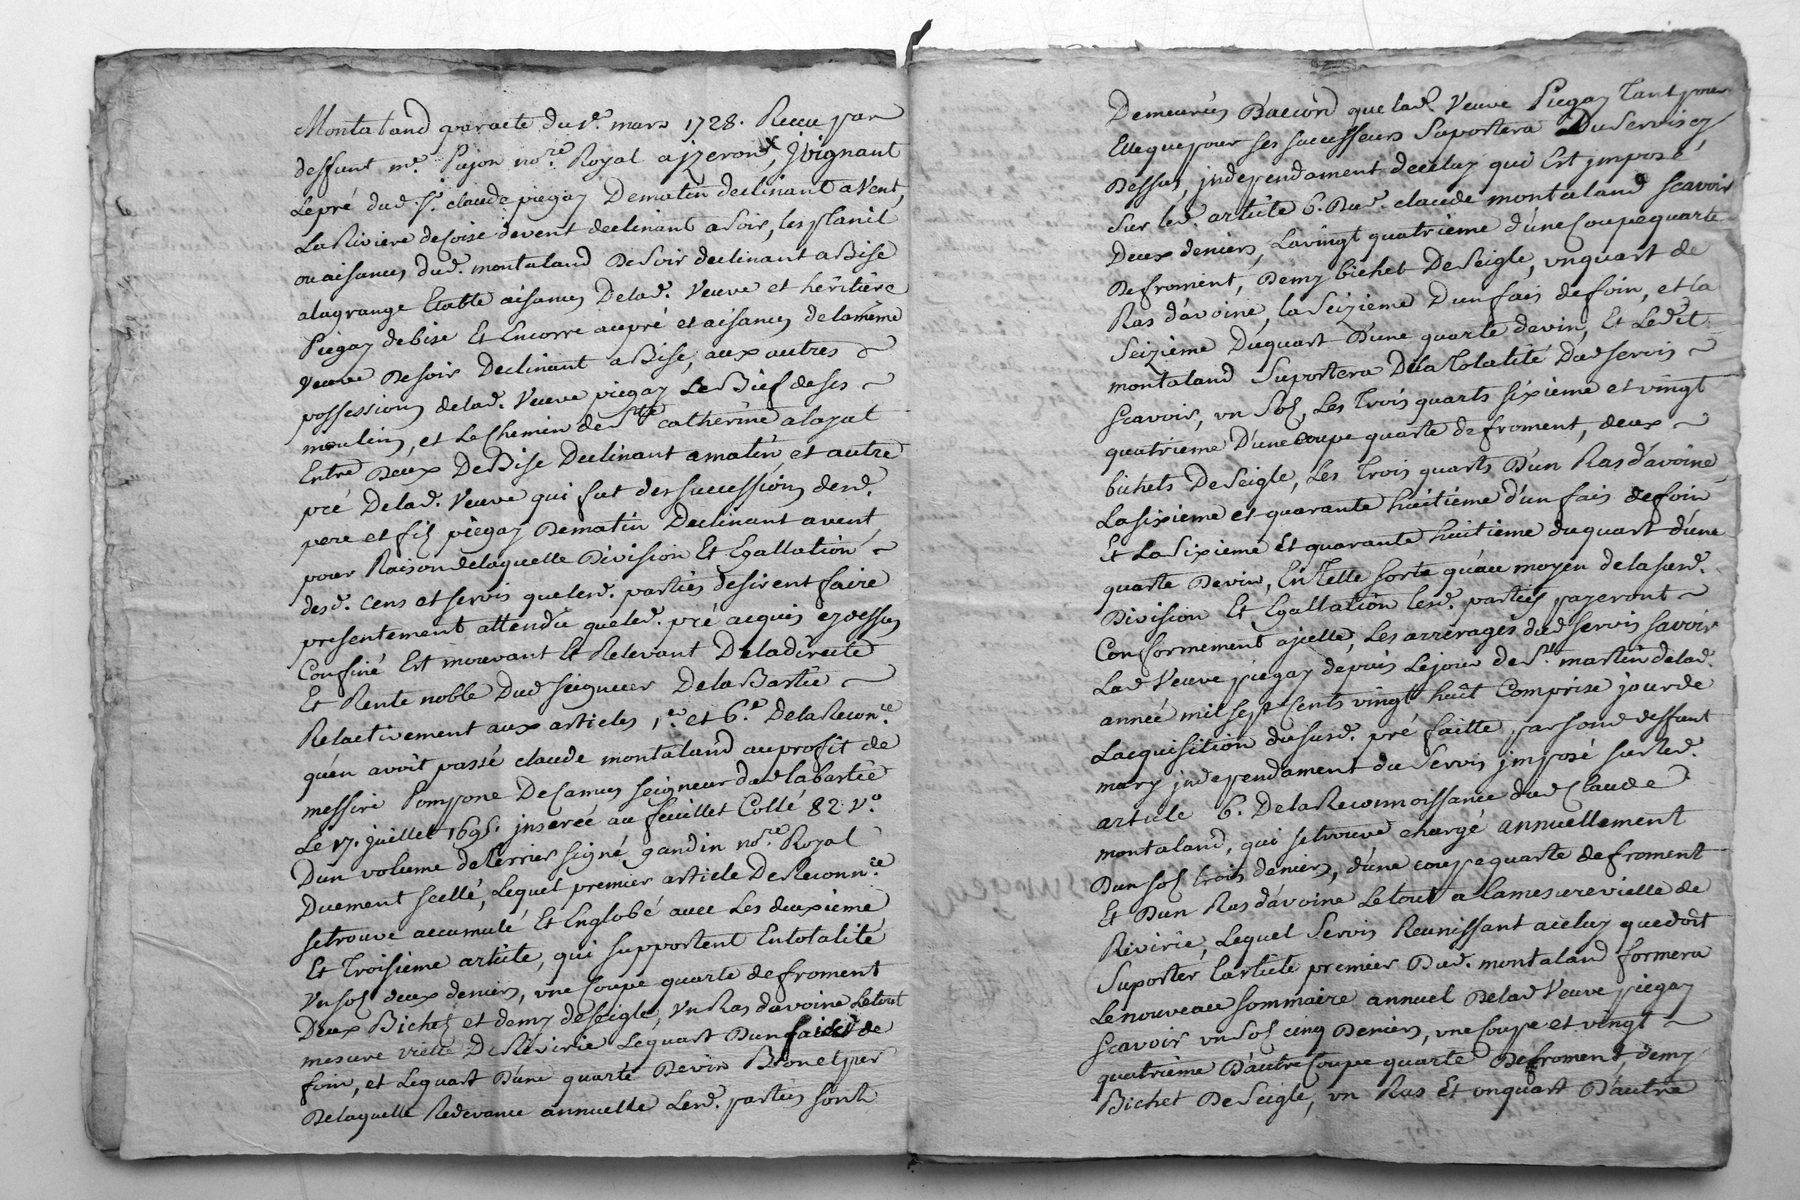 Montaland par acte du 1er. mars 1728. Recue par
deffunt me. Pajon nore. Royal a jzeron, Joignant
Le pré dud. Sr. claude piegay De matin declinant a Vent,
La Riviere de Coise de vent declinant a Soir, les planil
ou aisances dud. montaland De Soir declinant a Bise
a la grange Etable aisances De lad. Veuve et hêritiere
Piegay de bise Et Encorre au pré et aisances de la même
Veuve De soir Declinant a Bise, aux autres
possessions de lad. Veuve piegay Le Bief de ses
moulins, et Le Chemin de Ste catherine a layat
Entre Deux De Bise Declinant a matin et autre
pré De lad. Veuve qui fut des successions desd.
pere et fils piegay De matin Declinant a vent,
pour Raison de laquelle Division Et Egallation
desd. cens et servis que lesd. parties desirent faire
presentement attendû que led. pré acquis cy dessus
Confiné Est mouvant Et Relevant De la directe
Et Rente noble Dud seigneur De la Bartie
Relactivement aux articles 1er. et 6e. De la Reconce.
qu'en avoit passé claude montaland au profit de
messire Pompone De Camus seigneur dud la bartie
Le 17. juillet 1695. jnserée au feuillet Collé 82. Vo
D'un volume de terrier signé gandin nore Royal
Duement scellé, Lequel premier article De Reconnce
se trouve accumulé Et Englobé avec Les deuxieme
Et Troisieme article, qui supportent En totalité
Un sol deux deniers, une Coupe quarte de froment
Deux Bichets et demy de seigle, Un Ras d'avoine Le tout
mesure vielle De Rivirie Le quart D'un faix de
foin, et Le quart D'une quarte De vin Bon et pur
De laquelle Redevance annuelle Lesd. parties sont
Demeurées D'accord que lad. Veuve Piegay Tant pour
Elle que pour ses successeurs Suportera Du Servis cy
Dessus, jndependament de celuy qui Est jmposé
sur led. article 6. Dud. claude montaland scavoir
Deux deniers, La vingt quatrieme d'une Coupe quarte
De froment, Demy bichet De seigle, un quart de
Ras d'avoine, la Seizieme D'un fais de foin, et la
Seizieme Du quart D'une quarte de vin, Et Ledit
montaland Suportera De la Totalité Dud servis
scavoir, un Sol, Les Trois quarts sixieme et vingt
quatrieme D'une coupe quarte de froment, deux
bichets De seigle, Les Trois quarts D'un Ras d'avoine
La sixieme et quarante huitieme d'un fais de foin
Et La Sixieme Et quarante huitieme du quart d'une
quarte De vin, En Telle sorte qu'au moyen de la susd.
Division Et Egallation lesd. parties payeront
Conformement a jcelle, Les arrerages dud servis savoir
Lad Veuve piegay depuis Le jour de St. martin de lad.
année mil sept cents vingt huit Comprise jour de
L'acquisition du susd. pré faitte par son deffunt
mary jndependament du Servis jmposé sur led.
article 6. De la Reconnoissance dud Claude
montaland, qui se trouve chargé annuellement
D'un sol trois deniers, d'une coupe quarte de froment
Et D'un Ras d'avoine Le tout a la mesure vielle de
Rivirie, Lequel Servis Reunissant a celuy que doit
Suporter L'article premier Dud. montaland formera
Le nouveau Sommaire annuel De lad Veuve piegay
Scavoir un Sol cinq Deniers, une Coupe et vingt
quatrieme D'autre Coupe quarte De froment, demy
Bichet De Seigle, un Ras Et un quart D'autre